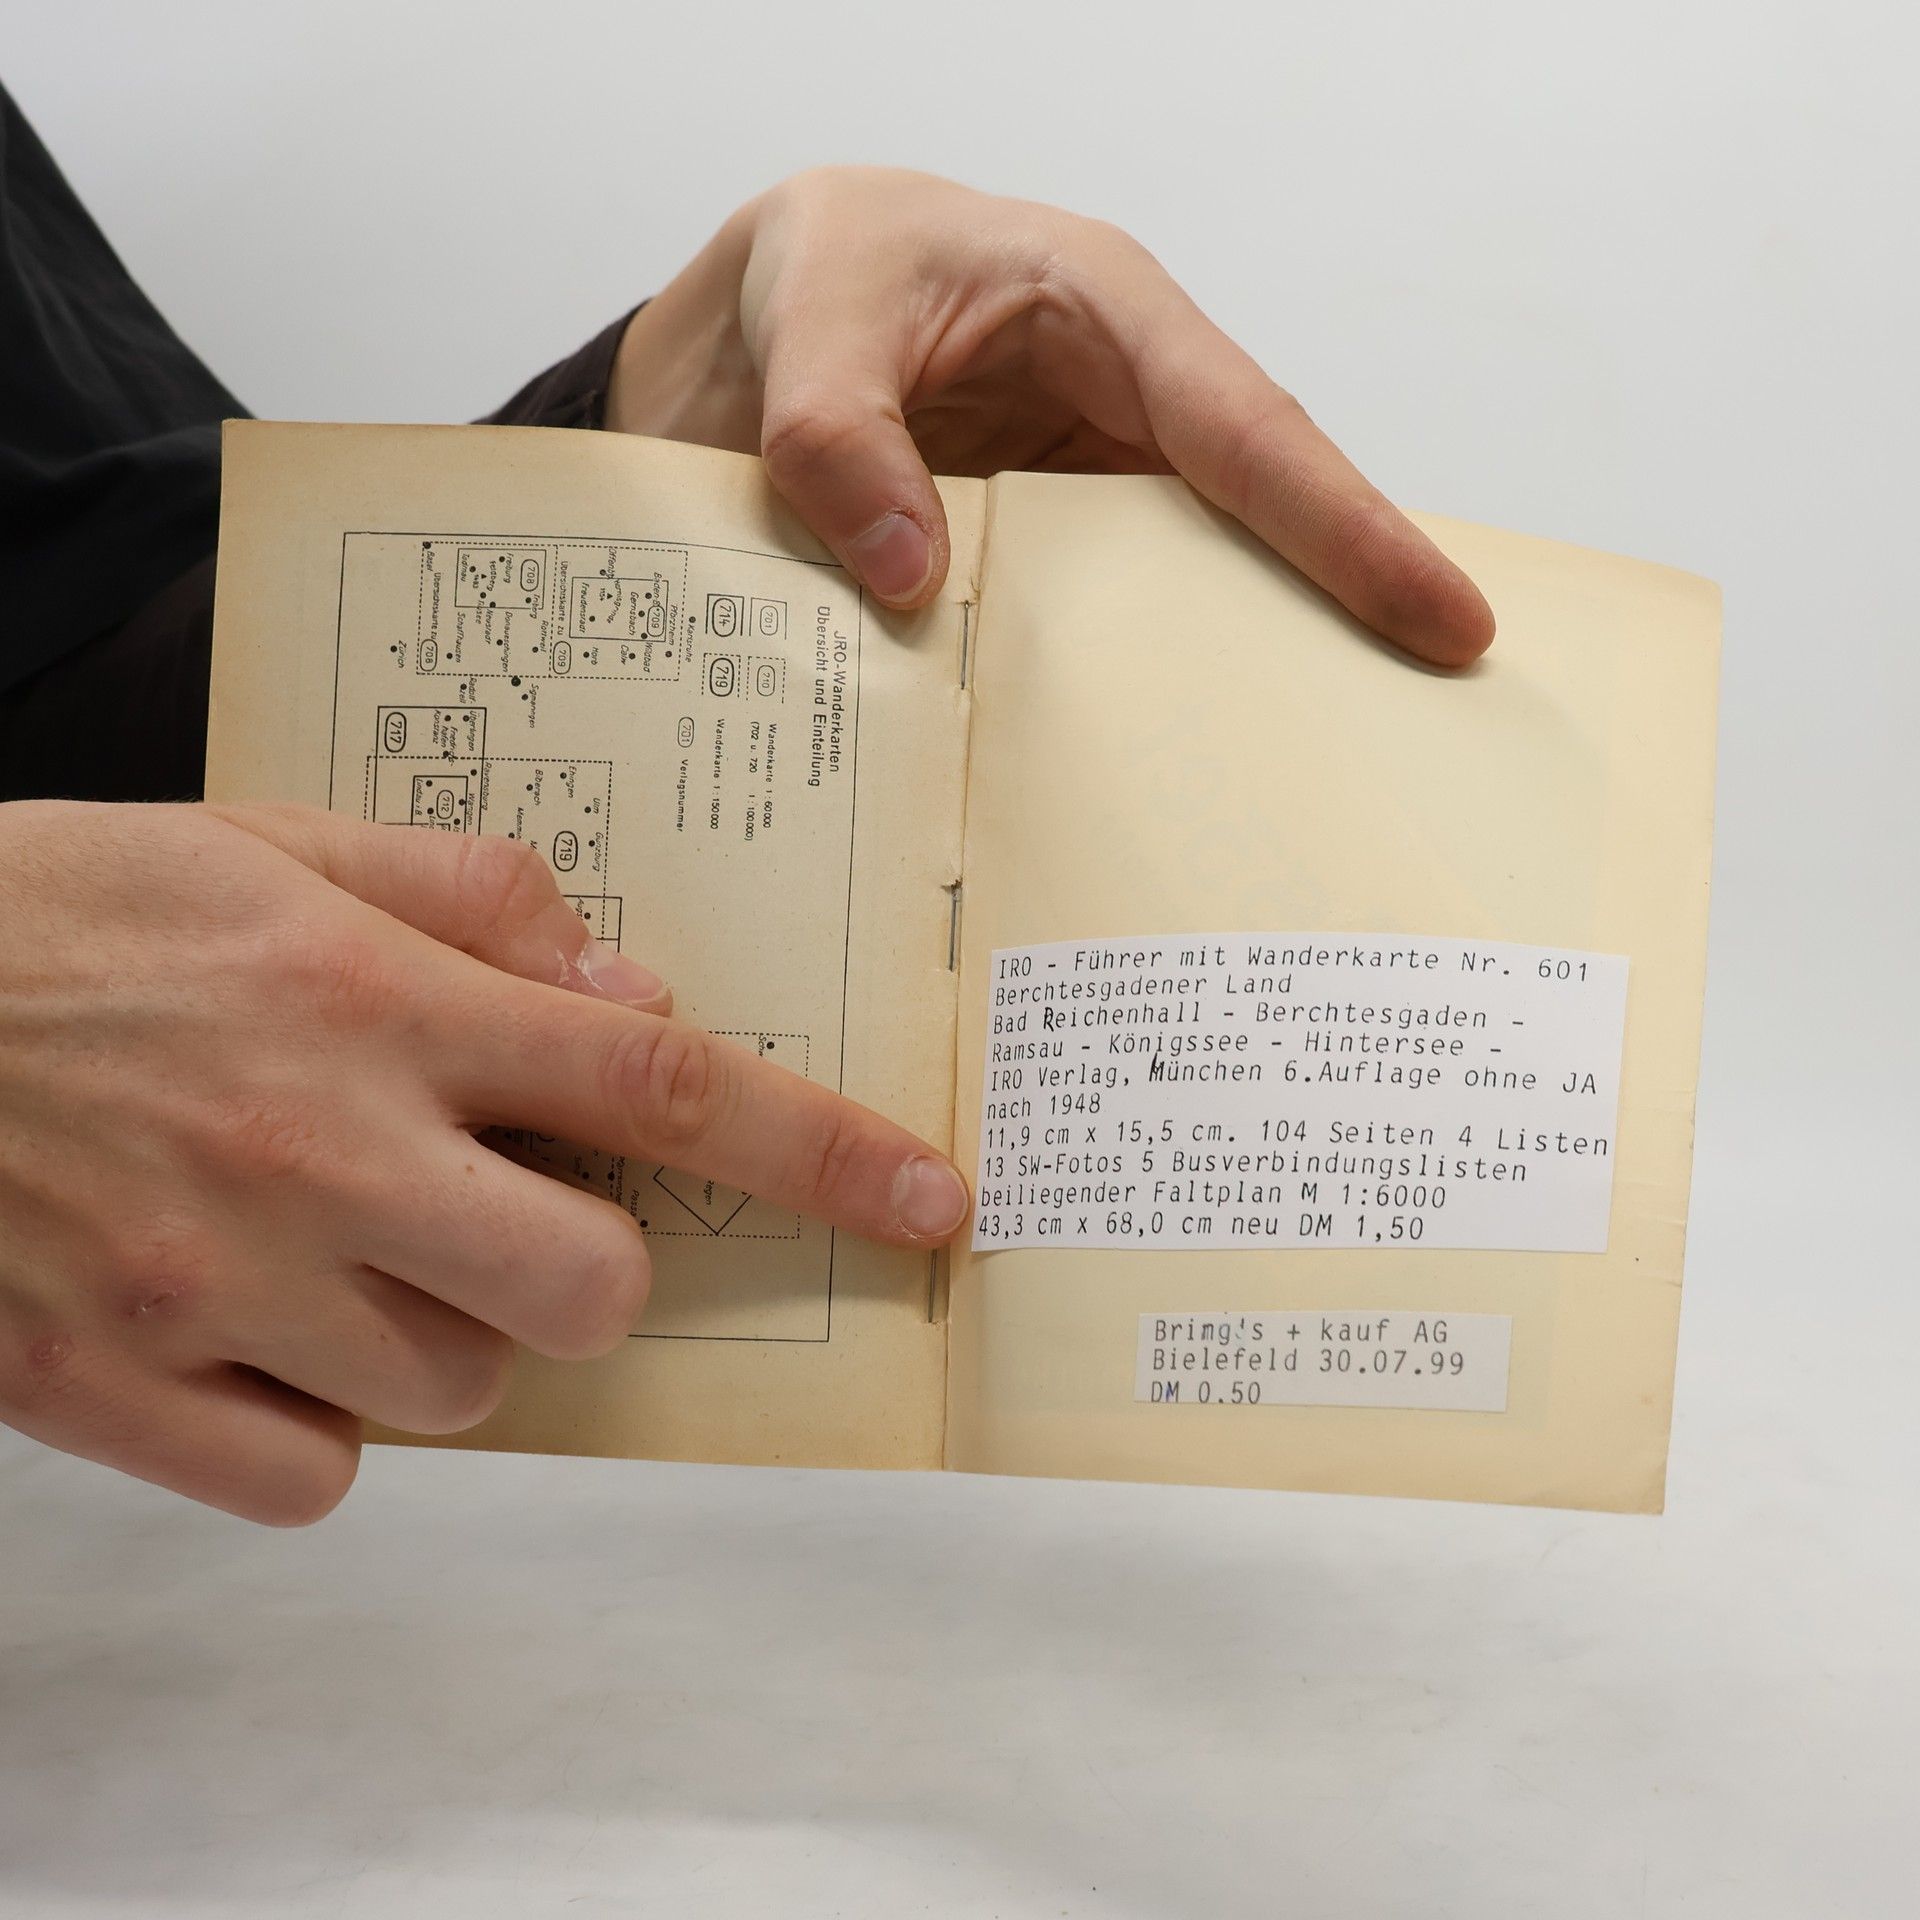 JRO-Wanderkarten
Übersicht und Einteilung
701
710
Wanderkarte 1:60000
(702 u. 720 1:100000)
714
719
Wanderkarte 1:150000
701
Verlagsnummer
Karlsruhe
Pforzheim
709
Wildbad
Gernsbach
Calw
Freudenstadt
Horb
Übersichtskarte zu 709
708
Freiburg
Feldberg
Todtnau
Neustadt
Triberg
Rottweil
Donaueschingen
Schaffhausen
Basel
Übersichtskarte zu 708
Zürich
Sigmaringen
Überlingen
Konstanz
717
Ravensburg
Wangen
712
Biberach
Ehingen
Ulm
Günzburg
719
Regen
IRO - Führer mit Wanderkarte Nr. 601
Berchtesgadener Land
Bad Reichenhall - Berchtesgaden -
Ramsau - Königssee - Hintersee -
IRO Verlag, München 6.Auflage ohne JA
nach 1948
11,9 cm x 15,5 cm. 104 Seiten 4 Listen
13 SW-Fotos 5 Busverbindungslisten
beiliegender Faltplan M 1:6000
43,3 cm x 68,0 cm neu DM 1,50
Bring's + kauf AG
Bielefeld 30.07.99
DM 0.50